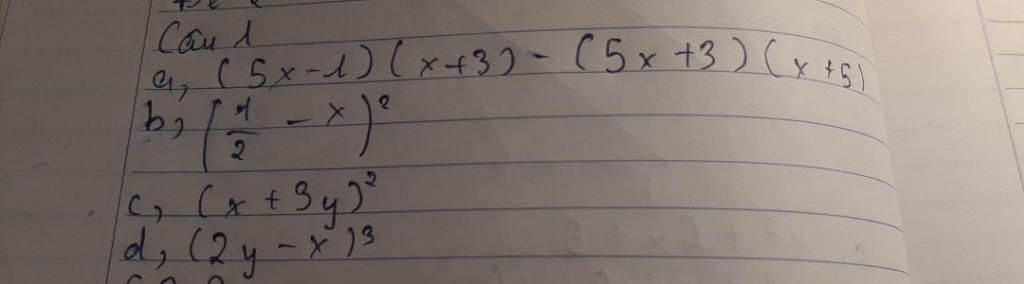 Câu 1
a, (5x-1)(x+3) - (5x+3)(x+5)
b, (1/2 - x)²
c, (x + 3y)²
d, (2y - x)³